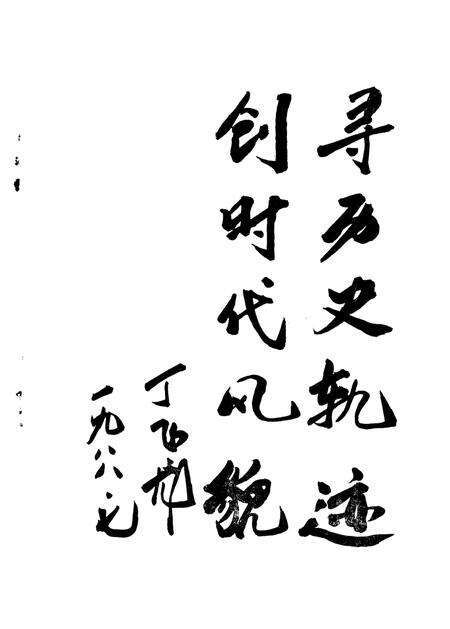 寻历史轨迹
创时代风貌
丁
一九八七